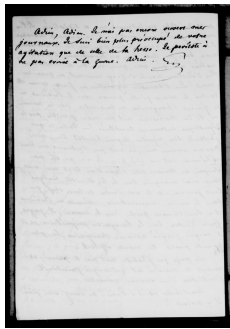 Adieu, Adieu. Je n'ai pas encore ouvert mes
journaux. Je suis bien plus préoccupé de votre
agitation que de celle de la Presse. Je persiste à
ne pas croire à la guerre. Adieu.